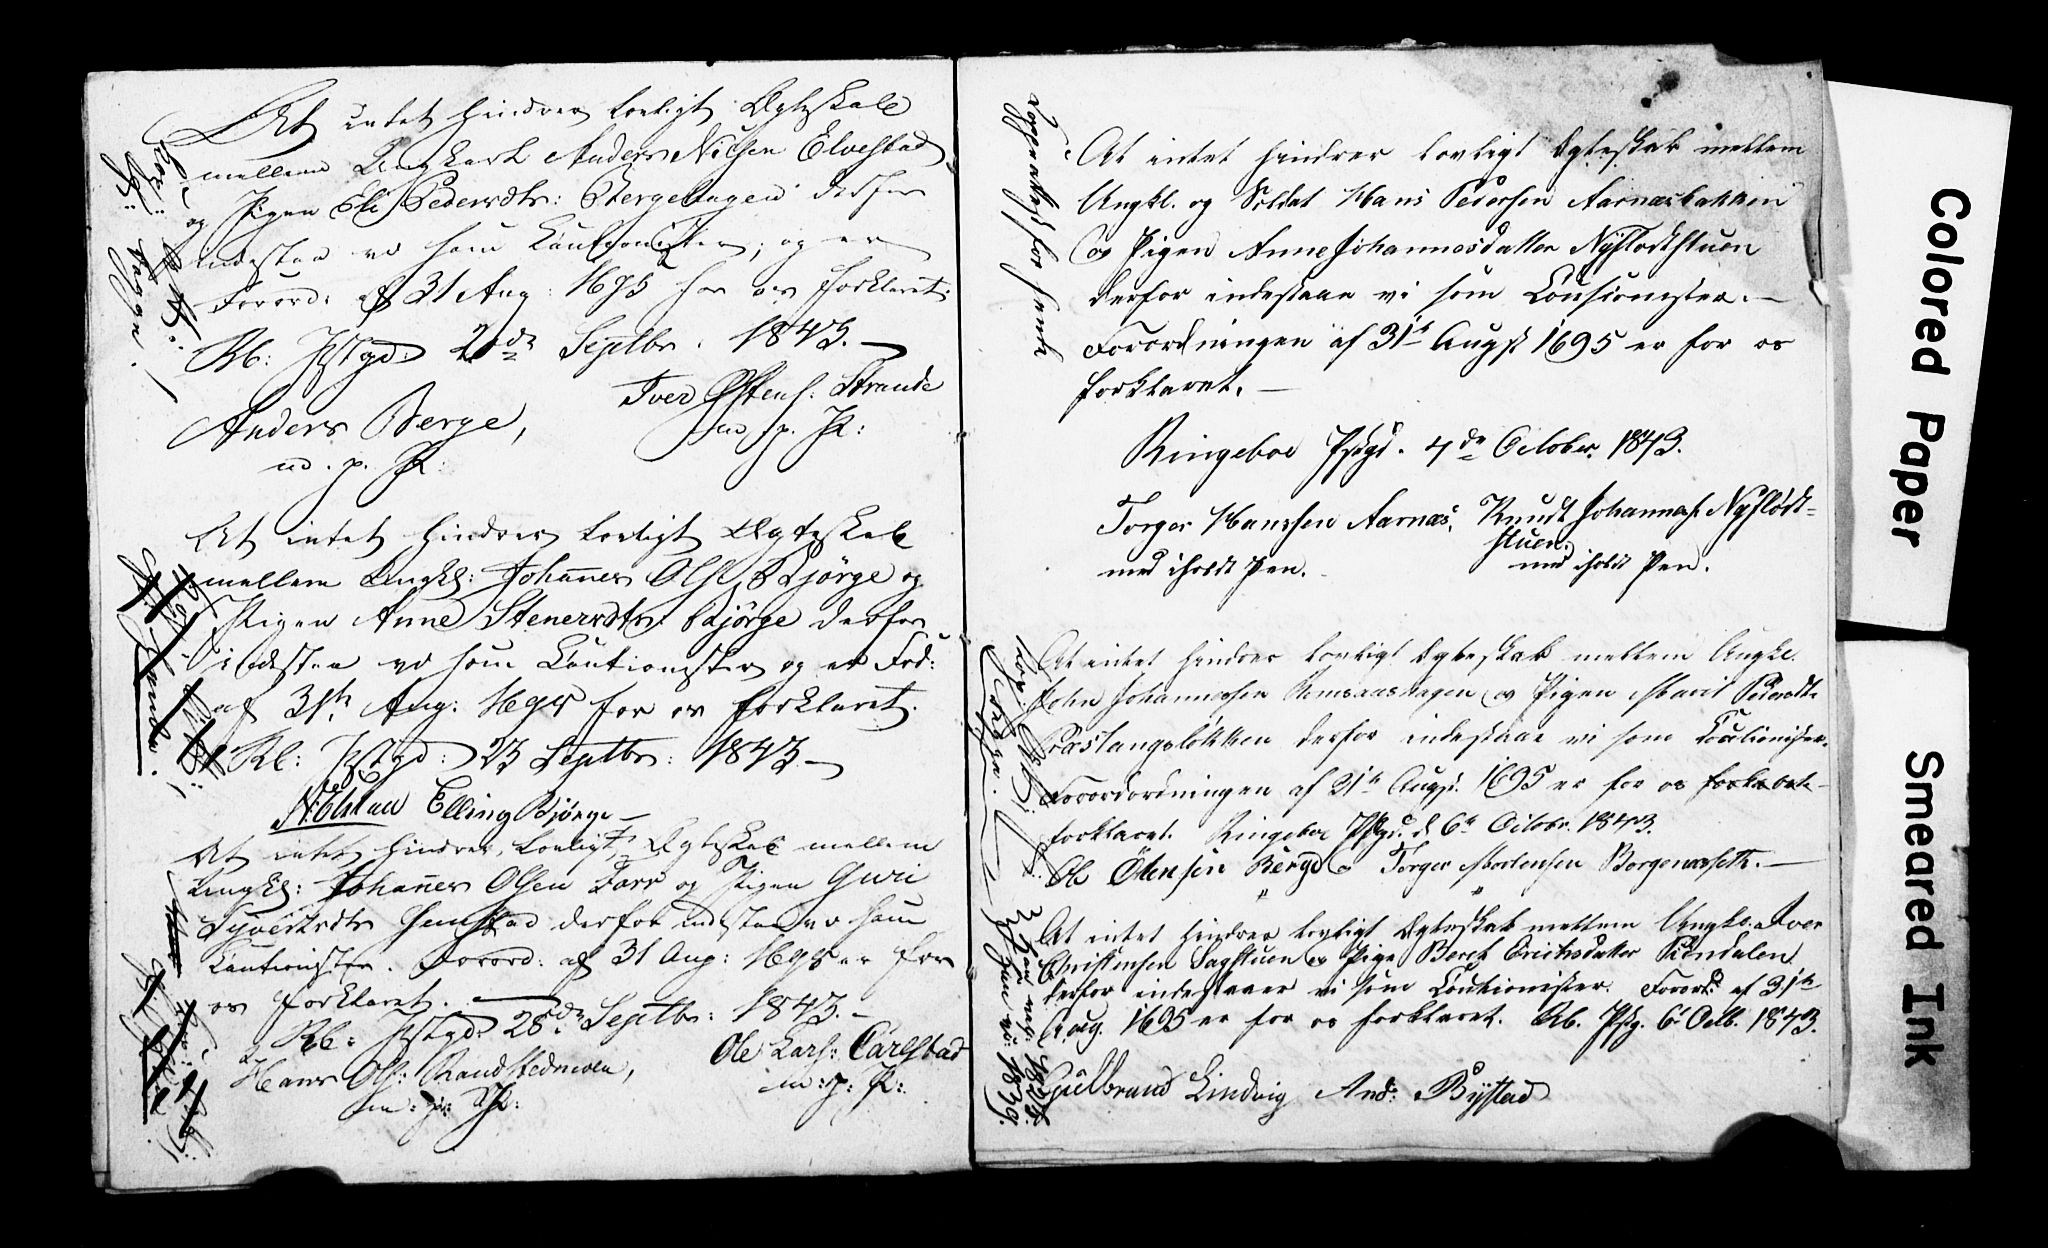 At intet hindrer lovligt Ægteskab
mellem Ungkarl Anders Nilsen Elvestad
og Pigen Eli Pedersdtr: Bergehagen derfor
indestaa vi som Cautionister, og er
Forord: af 31 Aug: 1695 for os forklaret.
Rb: Pstgd: 2den Septbr. 1843.
Iver Østens: Strande
m. p. P:
Anders Berge,
m. p. P:
At intet hindrer lovligt Ægteskab
mellem Ungk: Johannes Ols: Bjørge og
Pigen Anne Stenersdtr Bjørge derfor
indestaa vi som Cautionister og er Frd:
af 31te Aug: 1695 for os forklaret.
Rb: Pstgd: 23 Septbr: 1843
Elling Bjørge
At intet hindrer lovligt Ægteskab mellem
Ungk: Johannes Olsen Farr og Pigen Guri
Syvertsdtr derfor indestaa vi som
Cautionister. Forord: af 31 Aug: 1695 er for
os forklaret.
Rb: Pstgd: 28de Septbr: 1843.
Ole Lars: Carlstad
m: p: P:
Hans Ols: Randstedmoen,
m: p: P:
At intet hindrer lovligt Ægteskab mellem
Ungkl. og Soldat Hans Pedersen Aarnæsbakken
og Pigen Anne Johannesdatter Nyflodtstuen
derfor indestaae vi som Cousionister.
Forordningen af 31te Augst 1695 er for os
forklaret.
Ringeboe Pstgd. 4de October 1843.
Torger Hanssen Aarnæs, Knudt Johannes: Nyflødt-
stuen.
med iholdt Pen. med iholdt Pen.
At intet hindrer lovligt Ægteskab mellem Ungkl.
John Johannessen og Pigen Marit Pedersdtr
derfor indestaae vi som Coutionister.
Forordordningen af 31te Augst. 1695 er for os
forklaret. Ringeboe Pstgd. d 6te Octobr. 1843.
Ole Berge Torger Mortensen
At intet hindrer lovligt Ægteskab mellem Ungkl. Iver
Christensen Sagstuen og Pige Bereth Erichsdatter
derfor indestaaer vi som Coutionister. Forord: af 31te
Aug. 1695 er for os forklaret. Rb. Pstg. 6 Octb. 1843.
Gulbrand Lindvig And: Bystad
Colored Paper
Smeared Ink